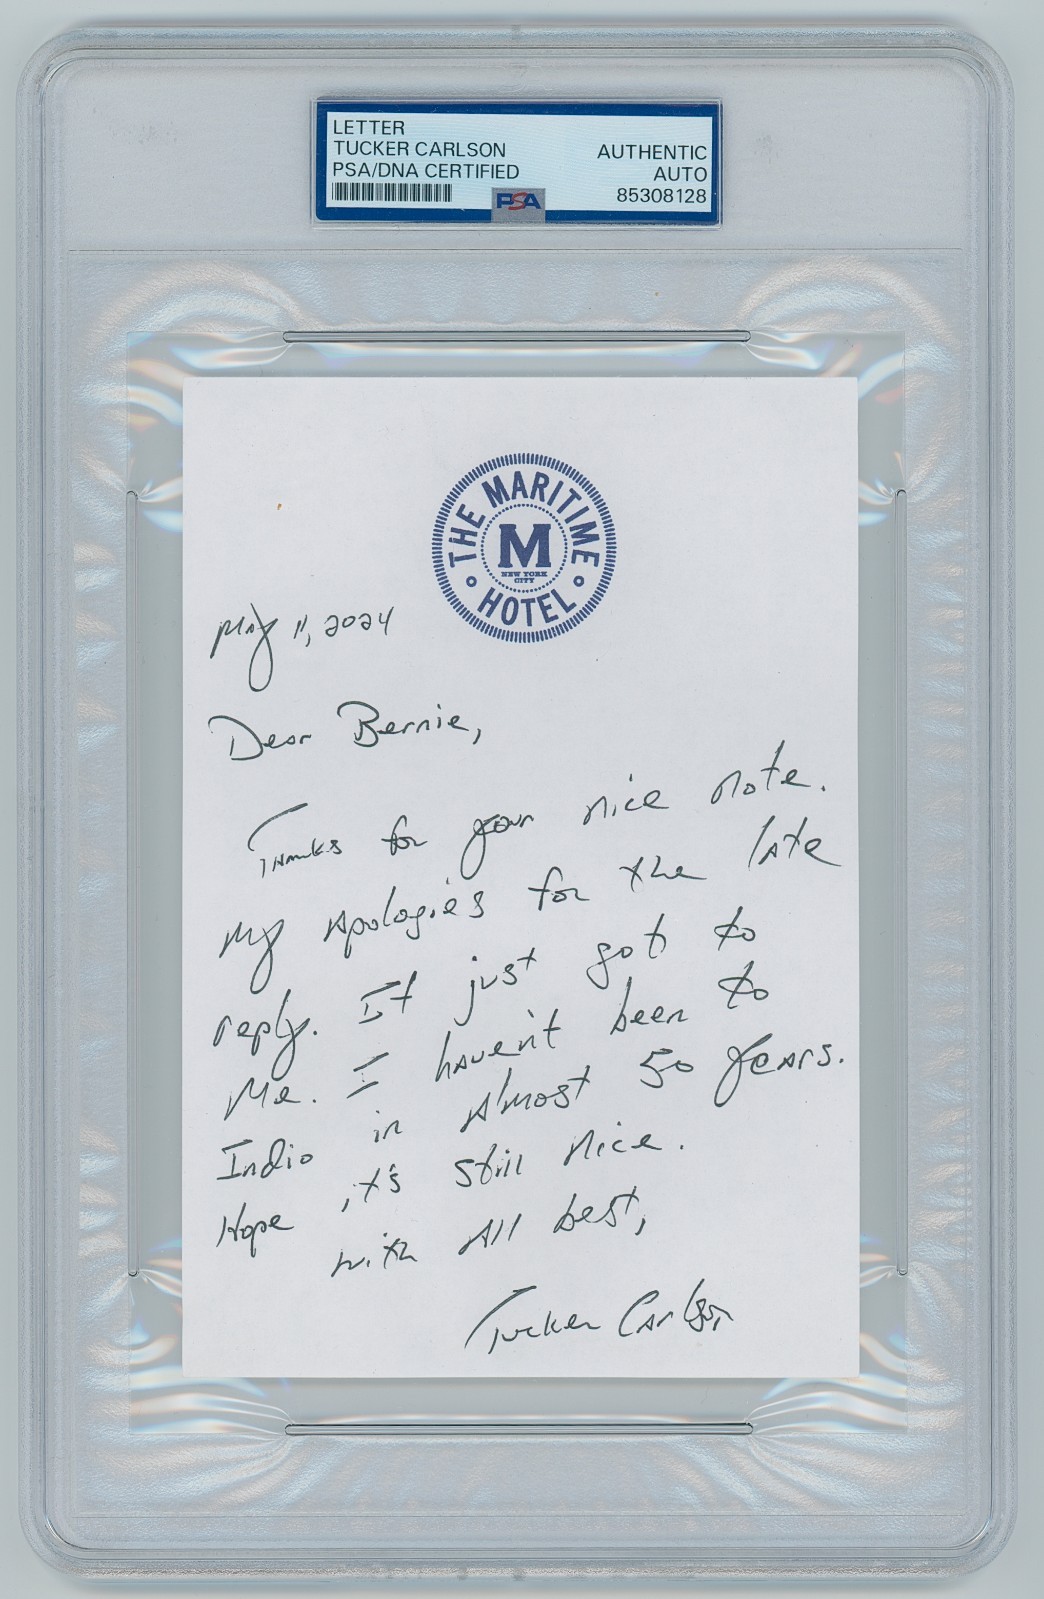 LETTER
TUCKER CARLSON
PSA/DNA CERTIFIED
AUTHENTIC
AUTO
85308128
PSA
THE MARITIME
M
NEW YORK
CITY
HOTEL
May 11, 2024
Dear Bernie,
Thanks for your nice note.
My Apologies for the late
reply. It just got to
Me. I haven't been to
Indio in Almost 50 years.
Hope it's still nice.
with All best,
Tucker Carlson